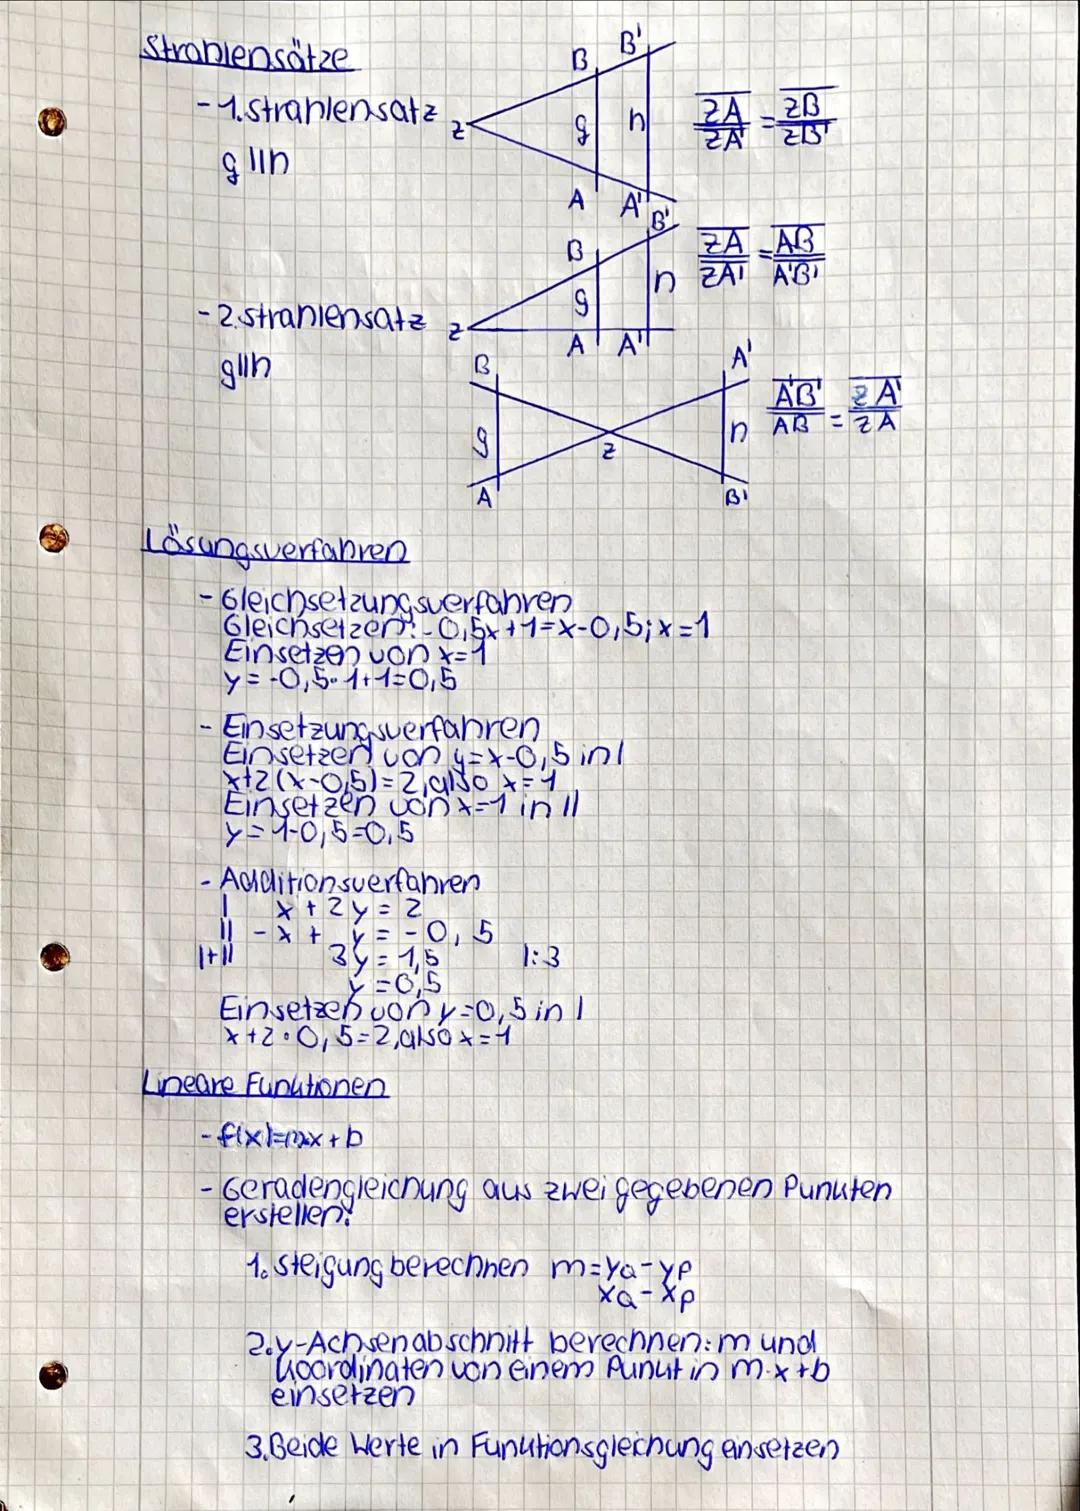 Strahlensätze
- 1. Strahlensatz
g || h
Z B B' g h A A'
ZA/ZA' = ZB/ZB'
- 2. Strahlensatz
g || h
Z B B' g h A A'
ZA/ZA' = AB/A'B'
B A' g h Z A B'
A'B'/AB = ZA'/ZA
Lösungsverfahren
- Gleichsetzungsverfahren
Gleichsetzen: -0,5x+1=x-0,5; x=1
Einsetzen von x=1
y = -0,5·1+1=0,5
- Einsetzungsverfahren
Einsetzen von y=x-0,5 in I
x+2(x-0,5)=2, also x=1
Einsetzen von x=1 in II
y=1-0,5=0,5
- Additionsverfahren
I x + 2y = 2
II - x + y = - 0,5
I+II 3y = 1,5 |:3
y = 0,5
Einsetzen von y=0,5 in I
x+2·0,5=2, also x=1
Lineare Funktionen
- f(x)=m·x + b
- Geradengleichung aus zwei gegebenen Punkten
erstellen:
1. Steigung berechnen m=yQ-yP
xQ-xP
2. y-Achsenabschnitt berechnen: m und
Koordinaten von einem Punkt in m·x+b
einsetzen
3. Beide Werte in Funktionsgleichung einsetzen